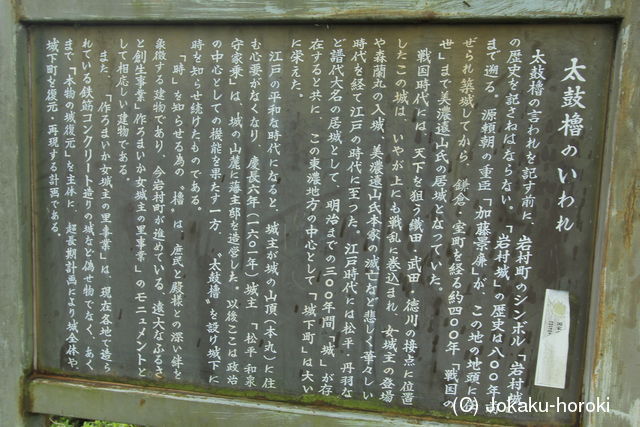 太鼓櫓のいわれ
太鼓櫓の言われを記す前に、岩村町のシンボル「岩村城」
の歴史を記さねばならない。「岩村城」の歴史は八〇〇年前
まで遡る。源頼朝の重臣「加藤景廉」が、この地の地頭に
ぜられ築城してから、鎌倉・室町を経る約四〇〇年「戦国の
世」まで美濃遠山氏の居城となっていた。
戦国時代には、天下を狙う織田・武田・徳川の接点に位置
したこの城は、いやが上にも戦乱に巻込まれ、女城主の登場
や森蘭丸の入城、美濃遠山氏本家の滅亡など悲しく華々しい
時代を経て江戸の時代に至った。江戸時代には松平・丹羽な
ど譜代大名の居城として、明治までの三〇〇年間「城」が存
在すると共に、この東濃地方の中心として「城下町」は大い
に栄えた。
江戸の平和な時代になると、城主が城の山頂(本丸)に住
む必要がなくなり、慶長六年(一六〇一年)城主「松平和泉
守家乗」は、城の山麓に藩主邸を造営した。以後ここは政治
の中心としての機能を果たす一方、"太鼓櫓"を設け城下に
時を知らせ続けたものである。
「時」を知らせる為の「櫓」は、庶民と殿様との深い絆を
象徴する建物であり、今岩村町が進めている、遠大なふるさ
と創生事業"作ろまいか女城主の里事業"のモニュメントと
して相応しい建物である。
また、"作ろまいか女城主の里事業"は、現在各地で造ら
れている鉄筋コンクリート造りの城など偽せ物でなく、あく
まで「本物の城復元」を主体に、超長期計画により城全体や、
城下町を復元・再現する計画である。
(C) Jokaku-horoki